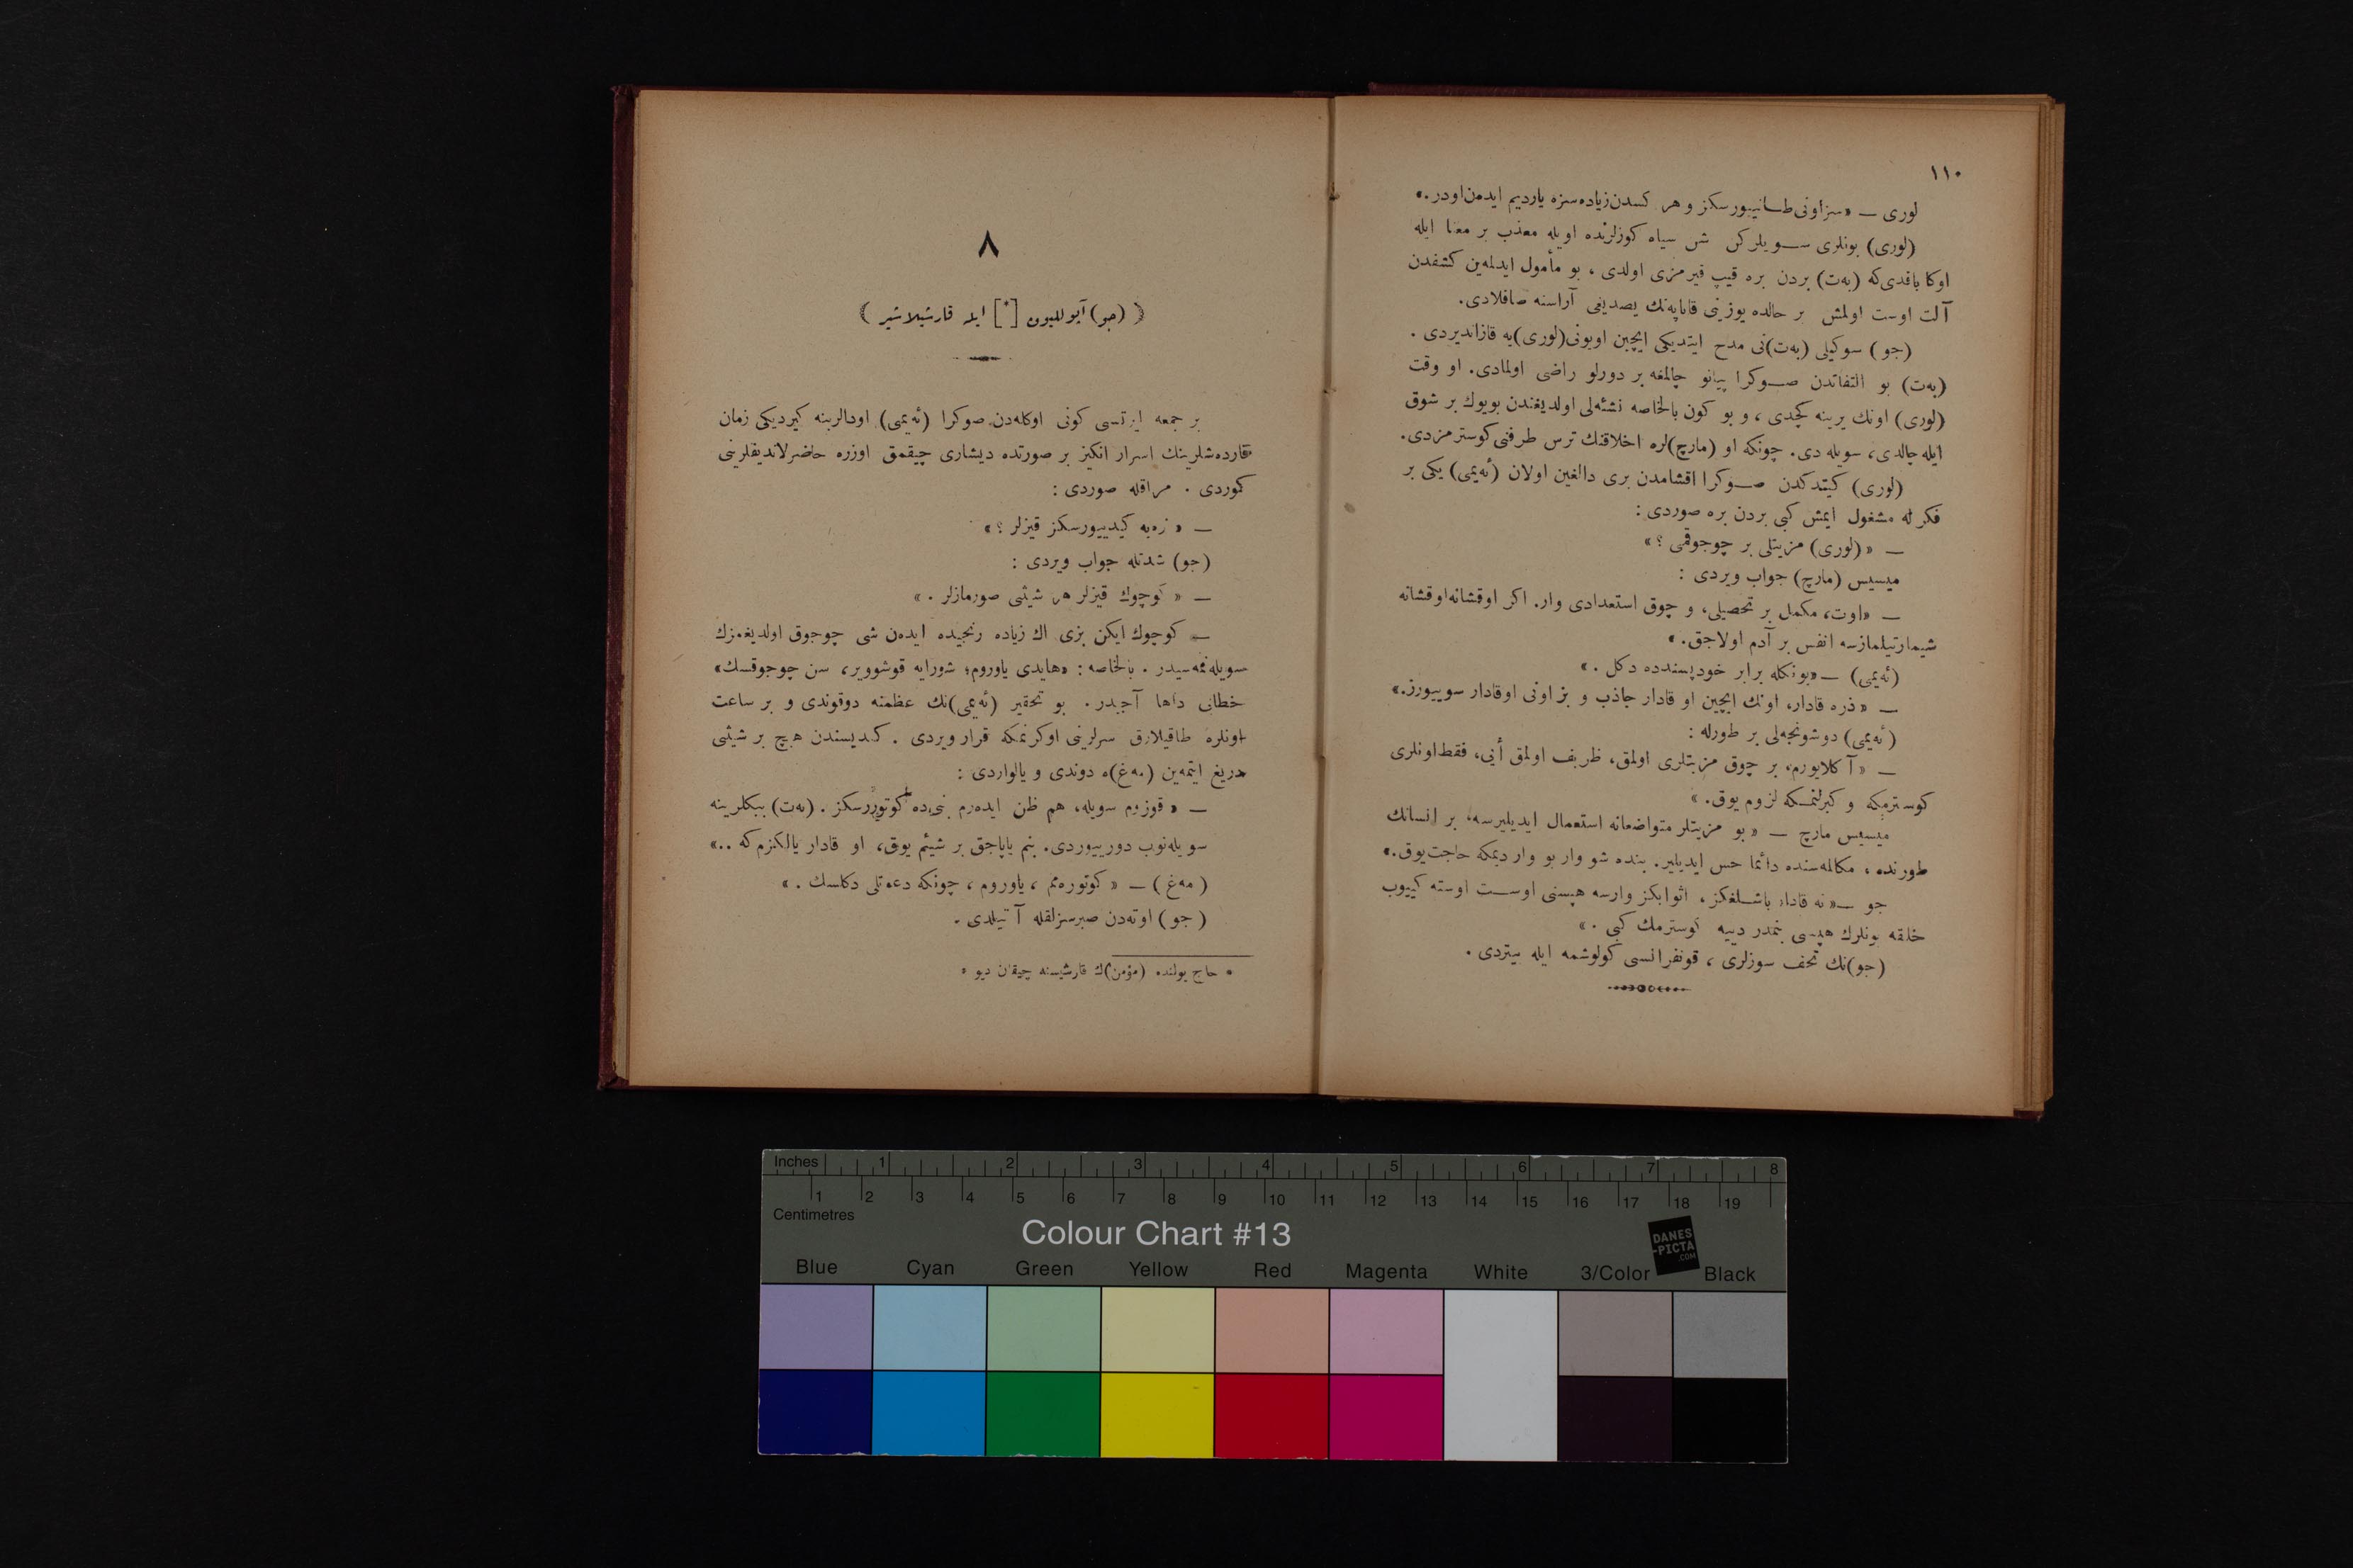 ١١٠
لوری — «سزاونی طانییورسکز و هر کسدن زیاده سزه یاردیم ایده‌ن اودر.»
(لوری) بونلری سویلرکن شن سیاه کوزلرنده اویله معذب بر معنا ایله
اوکا باقدی که (به‌ت) بردن بره قیپ قیرمزی اولدی ، بو مأمول ایدلمه‌ین کشفدن
آلت اوست اولمش بر حالده یوزینی قاناپه‌نك یصدیغی آراسنه صاقلادی.
(جو) سوکیلی (به‌ت)نی مدح ایتدیکی ایچین اویونی(لوری)یه قازاندیردی .
(به‌ت) بو التفاتدن صوکرا پیانو چالمغه بر دورلو راضی اولمادی. او وقت
(لوری) اونك یرینه کچدی ، و بو کون بالخاصه نشئه‌لی اولدیغندن بویوك بر شوق
ایله چالدی، سویله دی. چونکه او (مارچ)لره اخلاقنك ترس طرفنی کوسترمزدی.
(لوری) کیتدکدن صوکرا اقشامدن بری دالغین اولان (ئه‌یمی) یکی بر
فکرله مشغول ایمش کبی بردن بره صوردی :
— «(لوری) مزیتلی بر چوجوقمی ؟»
میسیس (مارچ) جواب ویردی :
— «اوت، مکمل بر تحصیلی، و چوق استعدادی وار. اکر اوقشانه اوقشانه
شیمارتیلمازسه انفس بر آدم اولاجق.»
(ئه‌یمی) — «بونکله برابر خودپسندده دکل .»
— «ذره قادار، اونك ایچین او قادار جاذب و بز اونی اوقادار سوییورز.»
(ئه‌یمی) دوشونجه‌لی بر طورله :
— «آکلایورم، بر چوق مزیتلری اولمق، ظریف اولمق أیی، فقط اونلری
کوسترمکه و کبرلنمکه لزوم یوق.»
میسیس مارچ — «بو مزیتلر متواضعانه استعمال ایدیلیرسه، بر انسانك
طورنده ، مکالمه‌سنده دائما حس ایدیلیر. بنده شو وار بو وار دیمکه حاجت یوق.»
جو —«نه قادار باشلغکز ، اثوابکز وارسه هپسنی اوست اوسته کییوب
خلقه بونلرك هپسی بنمدر دییه کوسترمك کبی .»
(جو)نك تحف سوزلری ، قونفرانسی کولوشمه ایله بیتردی .
٨
﴿ (جو) آپوللیون [*] ایله قارشیلاشیر ﴾
بر جمعه ایرتسی کونی اوکله‌دن صوکرا (ئه‌یمی) اودالرینه کیردیکی زمان
قارده‌شلرینك اسرار انکیز بر صورتده دیشاری چیقمق اوزره حاضرلاندیقلرینی
کوردی . مراقله صوردی :
— «نره‌یه کیدییورسکز قیزلر ؟»
(جو) شدتله جواب ویردی :
— «کوچوك قیزلر هر شیئی صورمازلر .»
— کوچوك ایکن بزی اك زیاده رنجیده ایده‌ن شی چوجوق اولدیغمزك
سویله‌نمه‌سیدر . بالخاصه : «هایدی یاوروم؛ شورایه قوشوویر، سن چوجوقسك»
خطابی داها آجیدر. بو تحقیر (ئه‌یمی)نك عظمته دوقوندی و بر ساعت
اونلره طاقیلارق سرلرینی اوکرنمکه قرار ویردی . کندیسندن هیچ بر شیئی
دریغ ایتمه‌ین (مه‌غ)ه دوندی و یالواردی :
— «قوزوم سویله، هم ظن ایده‌رم بنی‌ده کوتورورسکز . (به‌ت) ببکلرینه
سویله‌نوب دورییوردی. بنم یاپاجق بر شیئم یوق، او قادار یالکزم که ..»
(مه‌غ) — «کوتوره‌مم ، یاوروم ، چونکه دعوتلی دکلسك .»
(جو) اوته‌دن صبرسزلقله آتیلدی .
* حاج یولنده (مؤمن)ك قارشیسنه چیقان دیو *
Inches 1 2 3 4 5 6 7 8
1 2 3 4 5 6 7 8 9 10 11 12 13 14 15 16 17 18 19
Centimetres
Colour Chart #13
DANES
-PICTA
.COM
Blue Cyan Green Yellow Red Magenta White 3/Color Black